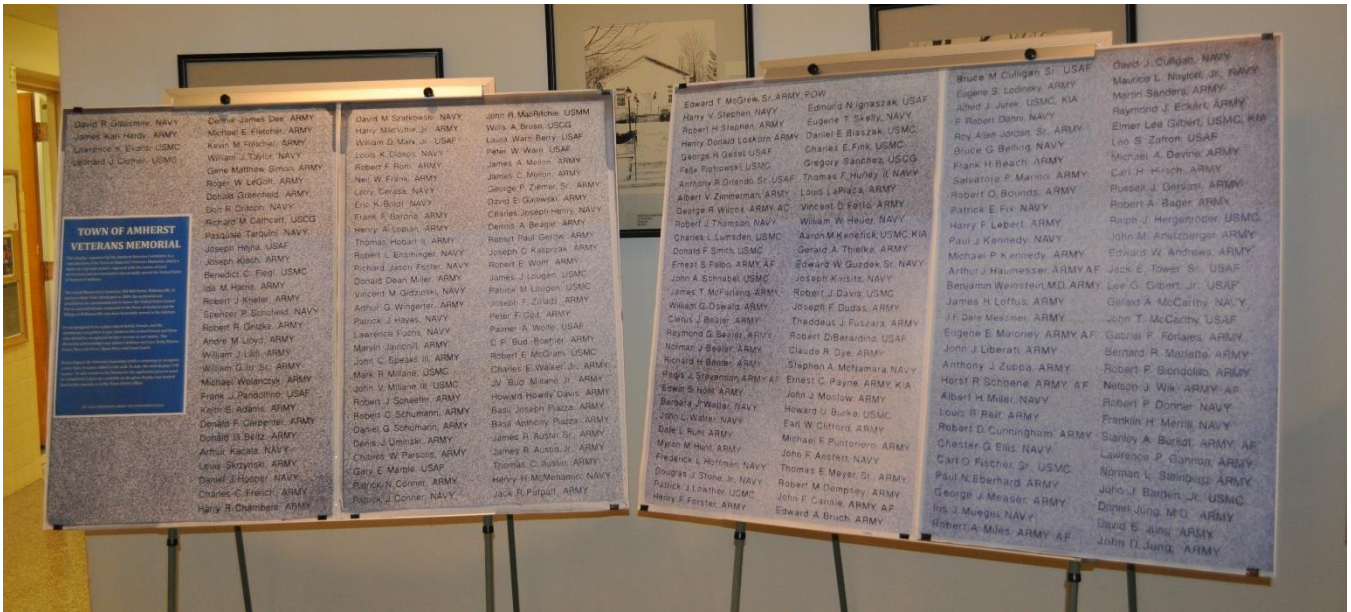 David R. Glassmire, NAVY
James Karl Hardy, ARMY
Lawrence K. Evans, USMC
Leonard J. Clomer, USMC
TOWN OF AMHERST
VETERANS MEMORIAL
Dennie James Dee, ARMY
Michael E. Fletcher, ARMY
Kevin M. Fletcher, ARMY
William J. Taylor, NAVY
Gene Matthew Simon, ARMY
Roger W. LeGoff, ARMY
Donald Greenfield, ARMY
Don R. NAVY
Richard M. Cathcart, USCG
Pasquale Tarquini, NAVY
Joseph Hejna, USAF
Joseph Kiech, ARMY
Benedict C. Fiegl, USMC
Ida M. Harris, ARMY
Robert J. Kriefer, ARMY
Spencer P. Schofield, NAVY
Robert R. Gritzke, ARMY
Andre M. Lloyd, ARMY
William J. ARMY
William G. Sr. ARMY
Michael Wolanczyk, ARMY
Frank J. Pandolfino, USAF
Keith E. Adams, ARMY
Donald F. Carpenter, ARMY
Donald G. Beitz, ARMY
Arthur Kacala, NAVY
Louis Skrzynski, ARMY
Daniel J. Hooper, NAVY
Charles C. French, ARMY
Harry R. Chambers, ARMY
David M. Sratkowski, NAVY
Harry MacVittie, Jr. ARMY
William D. Marx, Jr. USAF
Louis K. Diakos, NAVY
Robert F. Roth, ARMY
Neil W. Frank, ARMY
Larry Cerasa, NAVY
Eric K. Boldt, NAVY
Frank F. Barone, ARMY
Henry A. Lopian, ARMY
Thomas Hobart II, ARMY
Robert L. Ensminger, NAVY
Richard Jason Foster, NAVY
Donald Dean Miller, ARMY
Vincent M. Gidzinski, NAVY
Arthur G. Wingerter, ARMY
Patrick J. Hayes, NAVY
Lawrence Fuchs, NAVY
Marvin Jainchill, ARMY
John C. Speaks III, ARMY
Mark R. Millane, USMC
John V. Millane III, USMC
Robert J. Schaefer, ARMY
Robert C. Schumann, ARMY
Daniel G. Schumann, ARMY
Denis J. Uminski, ARMY
Charles W. Parsons, ARMY
Gary E. Marble, USAF
Patrick N. Conner, ARMY
Patrick J. Conner, NAVY
John R. MacRitchie, USMM
Willis A. Bruso, USCG
Laura Warn Berry, USAF
Peter W. Warn, USAF
James A. Mellon, ARMY
James C. Mellon, ARMY
George P. Ziemer, Sr. ARMY
David E. Gajewski, ARMY
Charles Joseph Henry, NAVY
Dennis A. Beagle, ARMY
Robert Paul Gerow, ARMY
Joseph C. Kasprzak, ARMY
Robert E. Wolff, ARMY
James J. Lougen, USMC
Patrick M. Lougen, USMC
Joseph F. Zoladz, ARMY
Peter F. Coit, ARMY
Palmer A. Wolfe, USAF
C.F. Bud Boehler, ARMY
Robert E. McGrath, USMC
Charles E. Walker, Jr. ARMY
J.V. Bud Millane, Jr. ARMY
Howard Howdy Davis, ARMY
Basil Joseph Piazza, ARMY
Basil Anthony Piazza, ARMY
James R. Austin, Sr. ARMY
James R. Austin, Jr. ARMY
Thomas C. Austin, ARMY
Henry H. McMenamin, NAVY
Jack R. Putpaff, ARMY
Edward T. McGrew, Sr. ARMY, POW
Harry V. Stephen, NAVY
Robert H. Stephen, ARMY
Henry Donald Loskorn, ARMY
George R. Gesel, USAF
Felix Piotrowski, USMC
Anthony R. Orlando, Sr. USAF
Albert V. Zimmerman, ARMY
George R. Wilcox, ARMY AC
Robert J. Thomson, NAVY
Charles L. Lumsden, USMC
Donald F. Smith, USMC
Ernest S. Falbo, ARMY AF
John A. Schnabel, USMC
James T. McFarland, ARMY
William G. Oswald, ARMY
Cletus J. Bealer, ARMY
Raymond G. Bealer, ARMY
Norman J. Bealer, ARMY
Richard H. Bealer, ARMY
Regis J. Stevenson, ARMY AF
Edwin S. Hohl, ARMY
Barbara J. Walter, NAVY
John L. Walter, NAVY
Dale L. Ruhl, ARMY
Myron M. Hunt, ARMY
Frederick L. Hoffman, NAVY
Douglas J. Stone, Jr. NAVY
Patrick J. Lowther, USMC
Henry F. Forster, ARMY
Edmund N. Ignaszak, USAF
Eugene T. Skelly, NAVY
Daniel E. Blaszak, USMC
Charles E. Fink, USMC
Gregory Sanchez, USCG
Thomas F. Hurley II, NAVY
Louis LaPiaca, ARMY
Vincent D. Ferlo, ARMY
William W. Heuer, NAVY
Aaron M. Kenefick, USMC, KIA
Gerald A. Thielke, ARMY
Edward W. Guzdek, Sr. NAVY
Joseph Keisitz, NAVY
Robert J. Davis, USMC
Joseph F. Dudas, ARMY
Thaddeus J. Fuszara, ARMY
Robert DiBerardino, USAF
Claude R. Dye, ARMY
Stephen A. McNamara, NAVY
Ernest C. Payne, ARMY, KIA
John J. Moslow, ARMY
Howard U. Burke, USMC
Earl W. Clifford, ARMY
Michael F. Punteriero, ARMY
John F. Anstett, NAVY
Thomas E. Meyer, Sr. ARMY
Robert M. Dempsey, ARMY
John F. Cannie, ARMY AF
Edward A. Bruch, ARMY
Bruce M. Culligan, Sr. USAF
Eugene S. Ledinsky, ARMY
Alfred J. Jurek, USMC, KIA
F. Robert Danni, NAVY
Roy Allen Jordan, Sr. ARMY
Bruce G. Belling, NAVY
Frank H. Beach, ARMY
Salvatore P. Marino, ARMY
Robert O. Bounds, ARMY
Patrick E. Fix, NAVY
Harry F. Lebert, ARMY
Paul J. Kennedy, NAVY
Michael P. Kennedy, ARMY
Arthur J. Haumesser, ARMY AF
Benjamin Weinstein, M.D. ARMY
James H. Loftus, ARMY
J.F. Dale Messmer, ARMY
Eugene E. Maloney, ARMY AF
John J. Liberati, ARMY
Anthony J. Zuppa, ARMY
Horst R. Schoene, ARMY AF
Albert H. Miller, NAVY
Louis R. Reif, ARMY
Robert D. Cunningham, ARMY
Chester G. Ellis, NAVY
Carl O. Fischer, Sr. USMC
Paul N. Eberhard, ARMY
George J. Measer, ARMY
Iris J. Muegel, NAVY
Robert A. Miles, ARMY AF
David J. Culligan, NAVY
Maurice L. Naylon, Jr. NAVY
Martin Sanders, ARMY
Raymond J. Eckert, ARMY
Elmer Lee Gilbert, USMC, KIA
Leo S. Zafron, USAF
Michael A. Devine, ARMY
Carl H. Hirsch, ARMY
Russell J. Gervasi, ARMY
Robert A. Bager, ARMY
Ralph J. Hergenroder, USMC
John M. Anstzberger, ARMY
Edward W. Andrews, ARMY
Jack E. Tower, Sr. USAF
Lee G. Gilbert, Jr. USAF
Gerald A. McCarthy, NAVY
John T. McCarthy, USAF
Gabriel P. Ferlaies, ARMY
Bernard R. Marlette, ARMY
Robert F. Biondolillo, ARMY
Nelson J. Wik, ARMY AF
Robert P. Donner, NAVY
Franklin H. Merrill, NAVY
Stanley A. Burkat, ARMY AF
Lawrence P. Gannon, ARMY
Norman L. Steinberg, ARMY
John J. Barden, Jr. USMC
Daniel Jung, M.D. ARMY
David E. Jung, ARMY
John D. Jung, ARMY